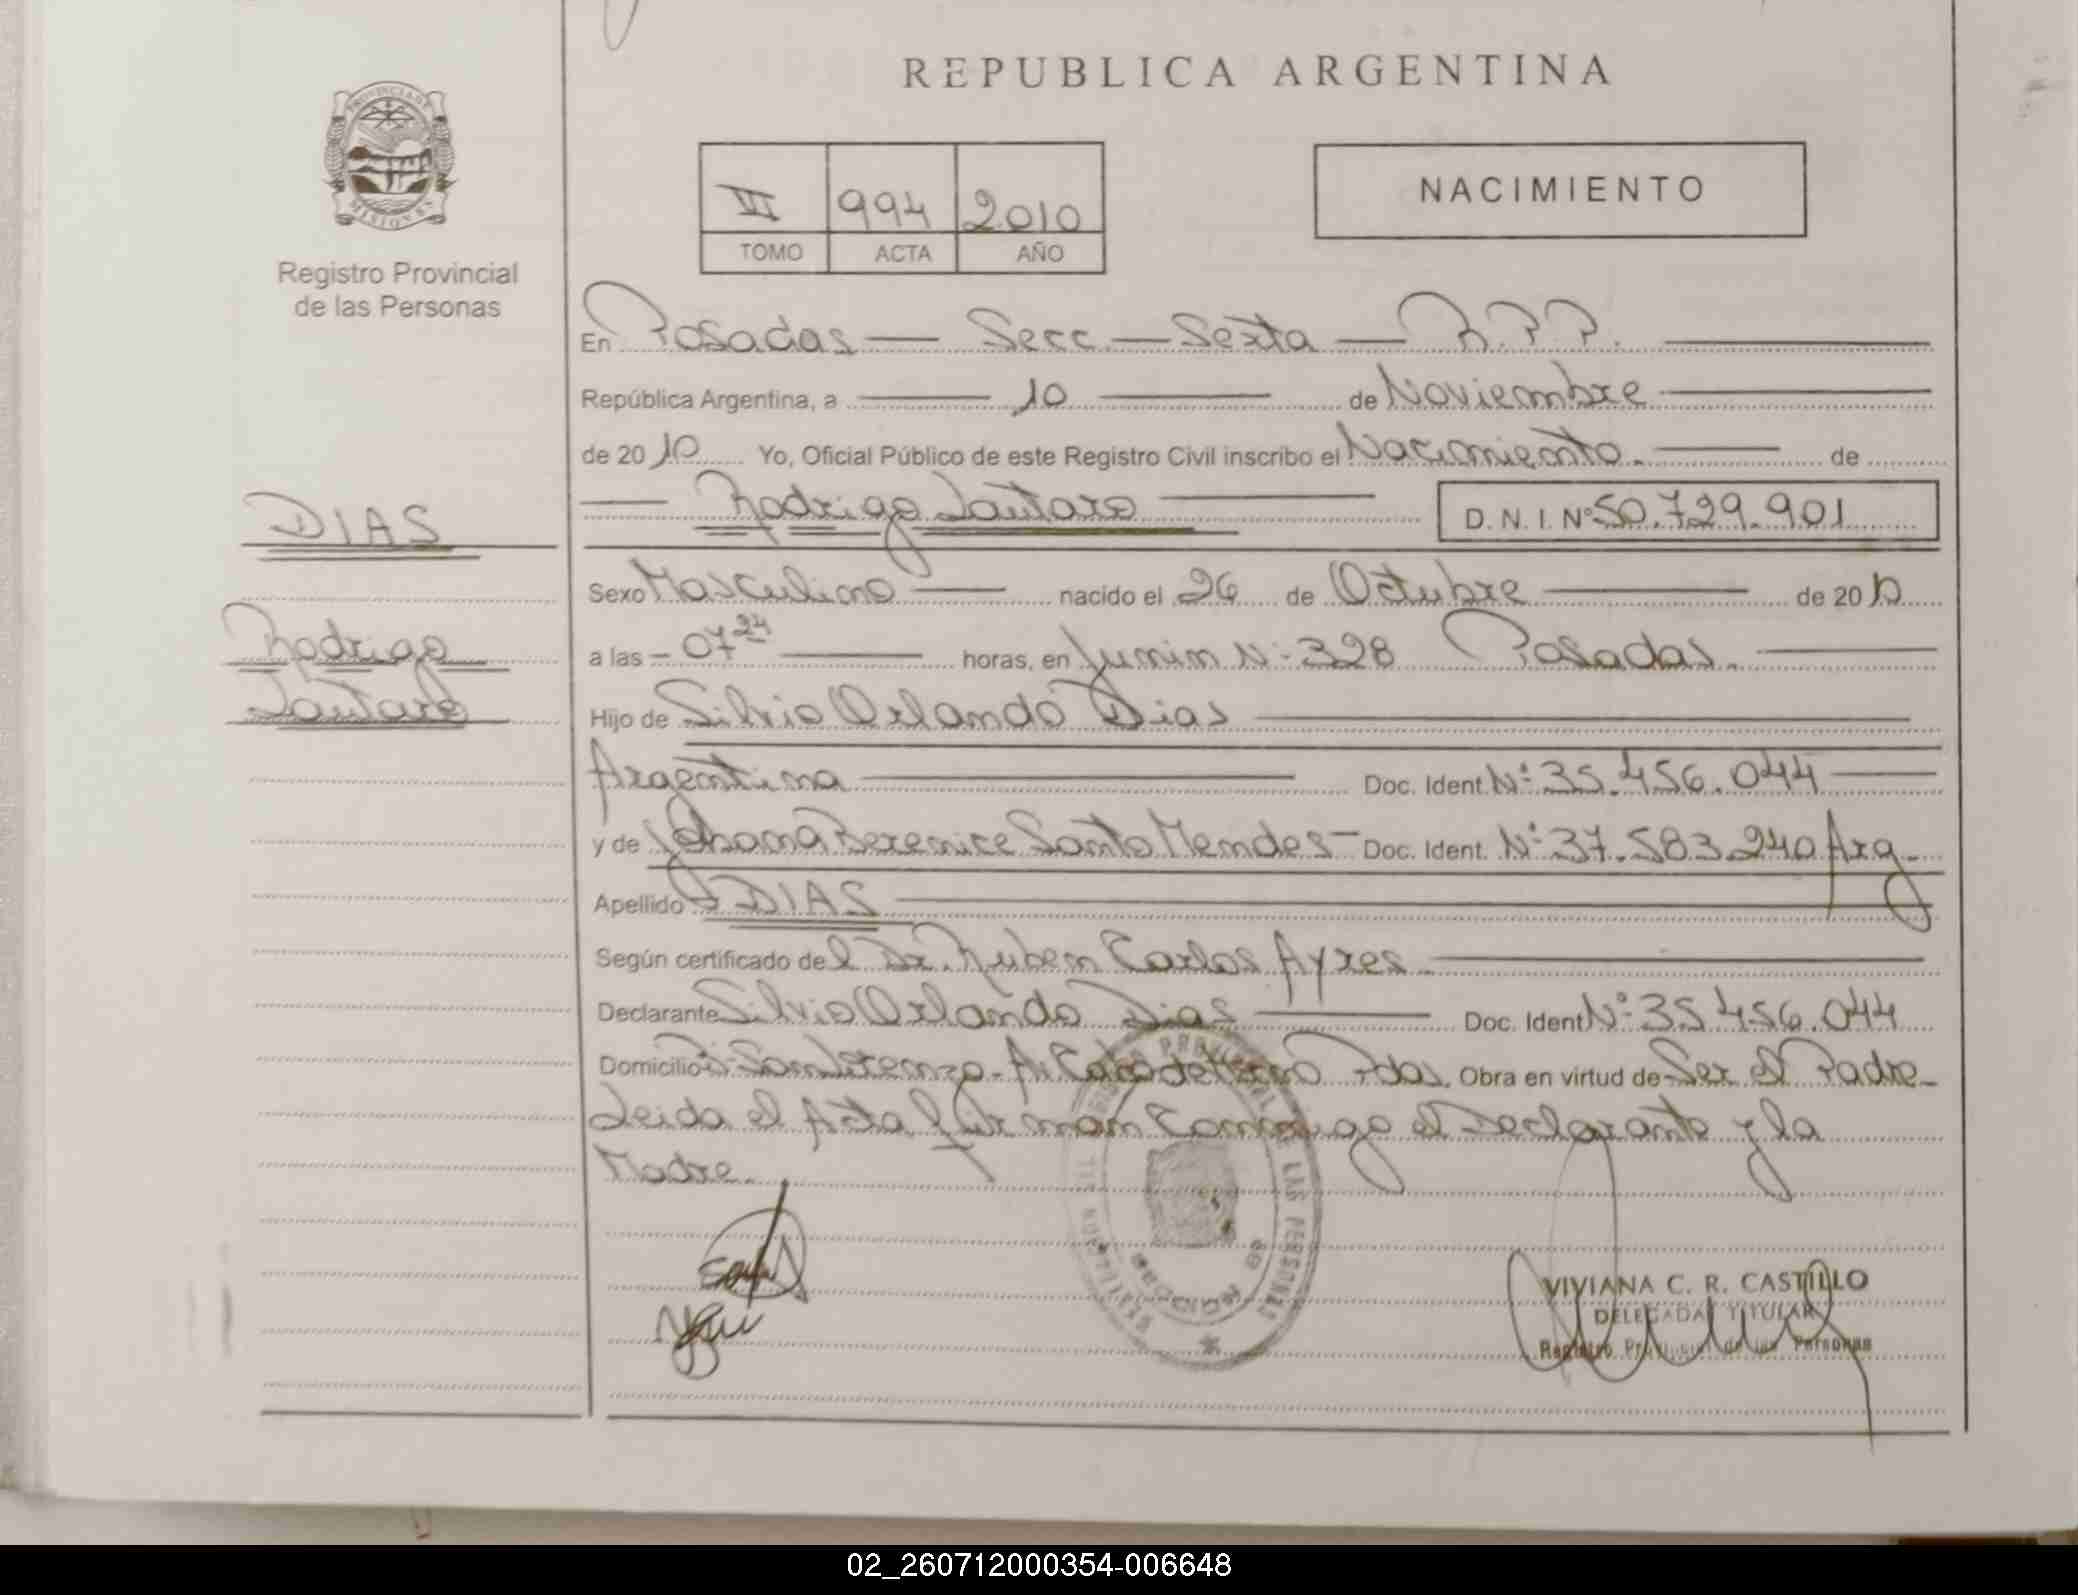 REPUBLICA ARGENTINA
PROVINCIA DE
MISIONES
Registro Provincial
de las Personas
VI 994 2010
TOMO ACTA AÑO
NACIMIENTO
En Posadas — Secc. — Sexta — R.P.P.
República Argentina, a 10 de Noviembre
de 2010 Yo, Oficial Público de este Registro Civil inscribo el Nacimiento. de
Rodrigo Lautaro D.N.I. Nº 50.729.901
DIAS
Rodrigo
Lautaro
Sexo Masculino nacido el 26 de Octubre de 2010
a las 07 24 horas, en Junin Nº 328 Posadas.
Hijo de Silvio Orlando Dias
Argentina Doc. Ident. Nº 35.456.044
y de Johana Berenice Santo Mendes - Doc. Ident. Nº 37.583.240 Arg.
Apellido DIAS
Según certificado del Dr. Ruben Carlos Ayres
Declarante Silvio Orlando Dias Doc. Ident Nº 35.456.044
Domicilio San Lorenzo - Av. Cabo de Hornos Pdas. Obra en virtud de Ser el Padre
Leida el Acta firman Conmigo el Declarante y la
Madre.
REGISTRO PROVINCIAL DE LAS PERSONAS
SECCION 6a
VIVIANA C. R. CASTILLO
DELEGADA TITULAR
Registro Provincial de las Personas
02_260712000354-006648